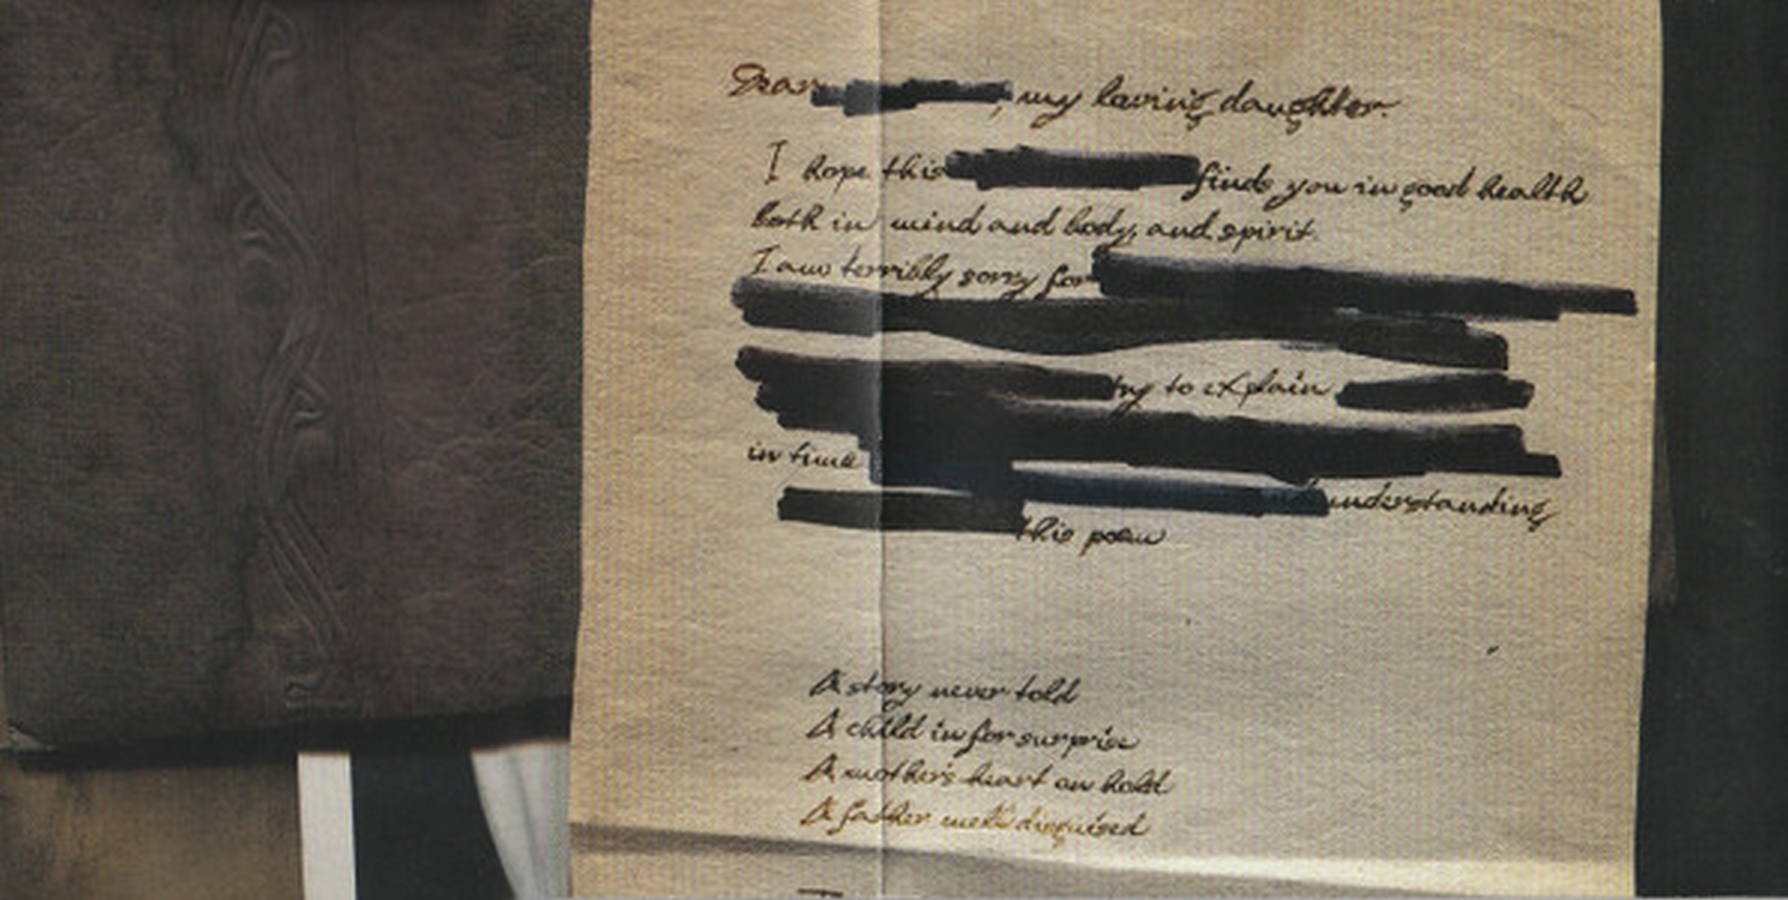 Dear , my loving daughter.
I hope this finds you in good health
both in mind and body, and spirit.
I am terribly sorry for
try to explain
in time
understanding
this poem
A story never told
A child in for surprise
A mother's heart on hold
A father well disguised